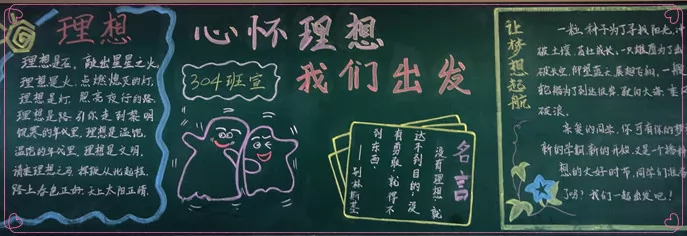 理想
理想是石,敲出星星之火,
理想是火,点燃熄灭的灯,
理想是灯,照亮夜行的路,
理想是路,引你走到黎明
饥寒的年代里,理想是温饱,
温饱的年代里,理想是文明,
路上春色正好,天上太阳正晴,
心怀理想
我们出发
304班宣
名言
没有理想,就
达不到目的,没
有勇敢,就得不
到东西。
——别林斯基
让梦想起航
一粒种子为了寻找阳光,冲
破土壤,茁壮成长,一只雄鹰为了
破长空,仰望蓝天,展翅飞翔,一艘
破浪。
亲爱的同学,你可有你的梦
新的学期,新的开始,又是一个播种
想的大好时节,同学们准备
了吗?我们一起出发吧!